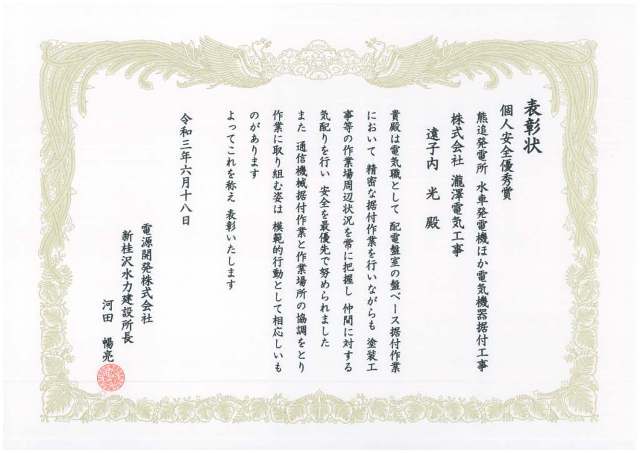 表彰状
個人安全優秀賞
熊追発電所 水車発電機ほか電気機器据付工事
株式会社 瀧澤電気工事
遠子内 光 殿
貴殿は電気職として 配電盤室の盤ベース据付作業
において 精密な据付作業を行いながらも 塗装工
事等の作業場周辺状況を常に把握し 仲間に対する
気配りを行い 安全を最優先で努められました
また 通信機械据付作業と作業場所の協調をとり
作業に取り組む姿は 模範的行動として相応しいも
のがあります
よってこれを称え 表彰いたします
令和三年六月十八日
電源開発株式会社
新桂沢水力建設所長
河田 暢亮